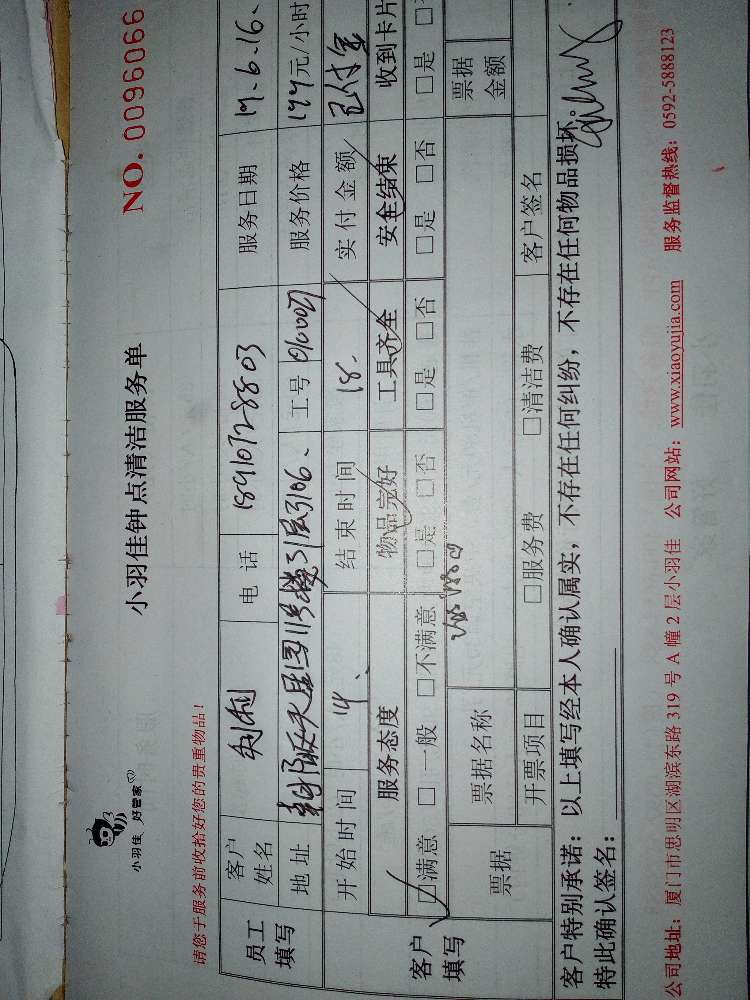 小羽佳 好管家
小羽佳钟点清洁服务单
NO. 0096066
请您于服务前收拾好您的贵重物品！
员工填写 客户姓名 电话 18910728803 服务日期 19.6.16.
地址 工号 服务价格 元/小时
开始时间 14. 结束时间 18. 实付金额 已付金
客户填写 服务态度 物品完好 工具齐全 安全结束 收到卡片
□满意 □一般 □不满意 □是 □否 □是 □否 □是 □否 □是
票据 票据名称 票据金额
开票项目 □服务费 □清洁费 客户签名
客户特别承诺：以上填写经本人确认属实，不存在任何纠纷，不存在任何物品损坏.
特此确认签名：
公司地址：厦门市思明区湖滨东路 319 号 A 幢 2 层小羽佳 公司网站：www.xiaoyujia.com 服务监督热线：0592-5888123